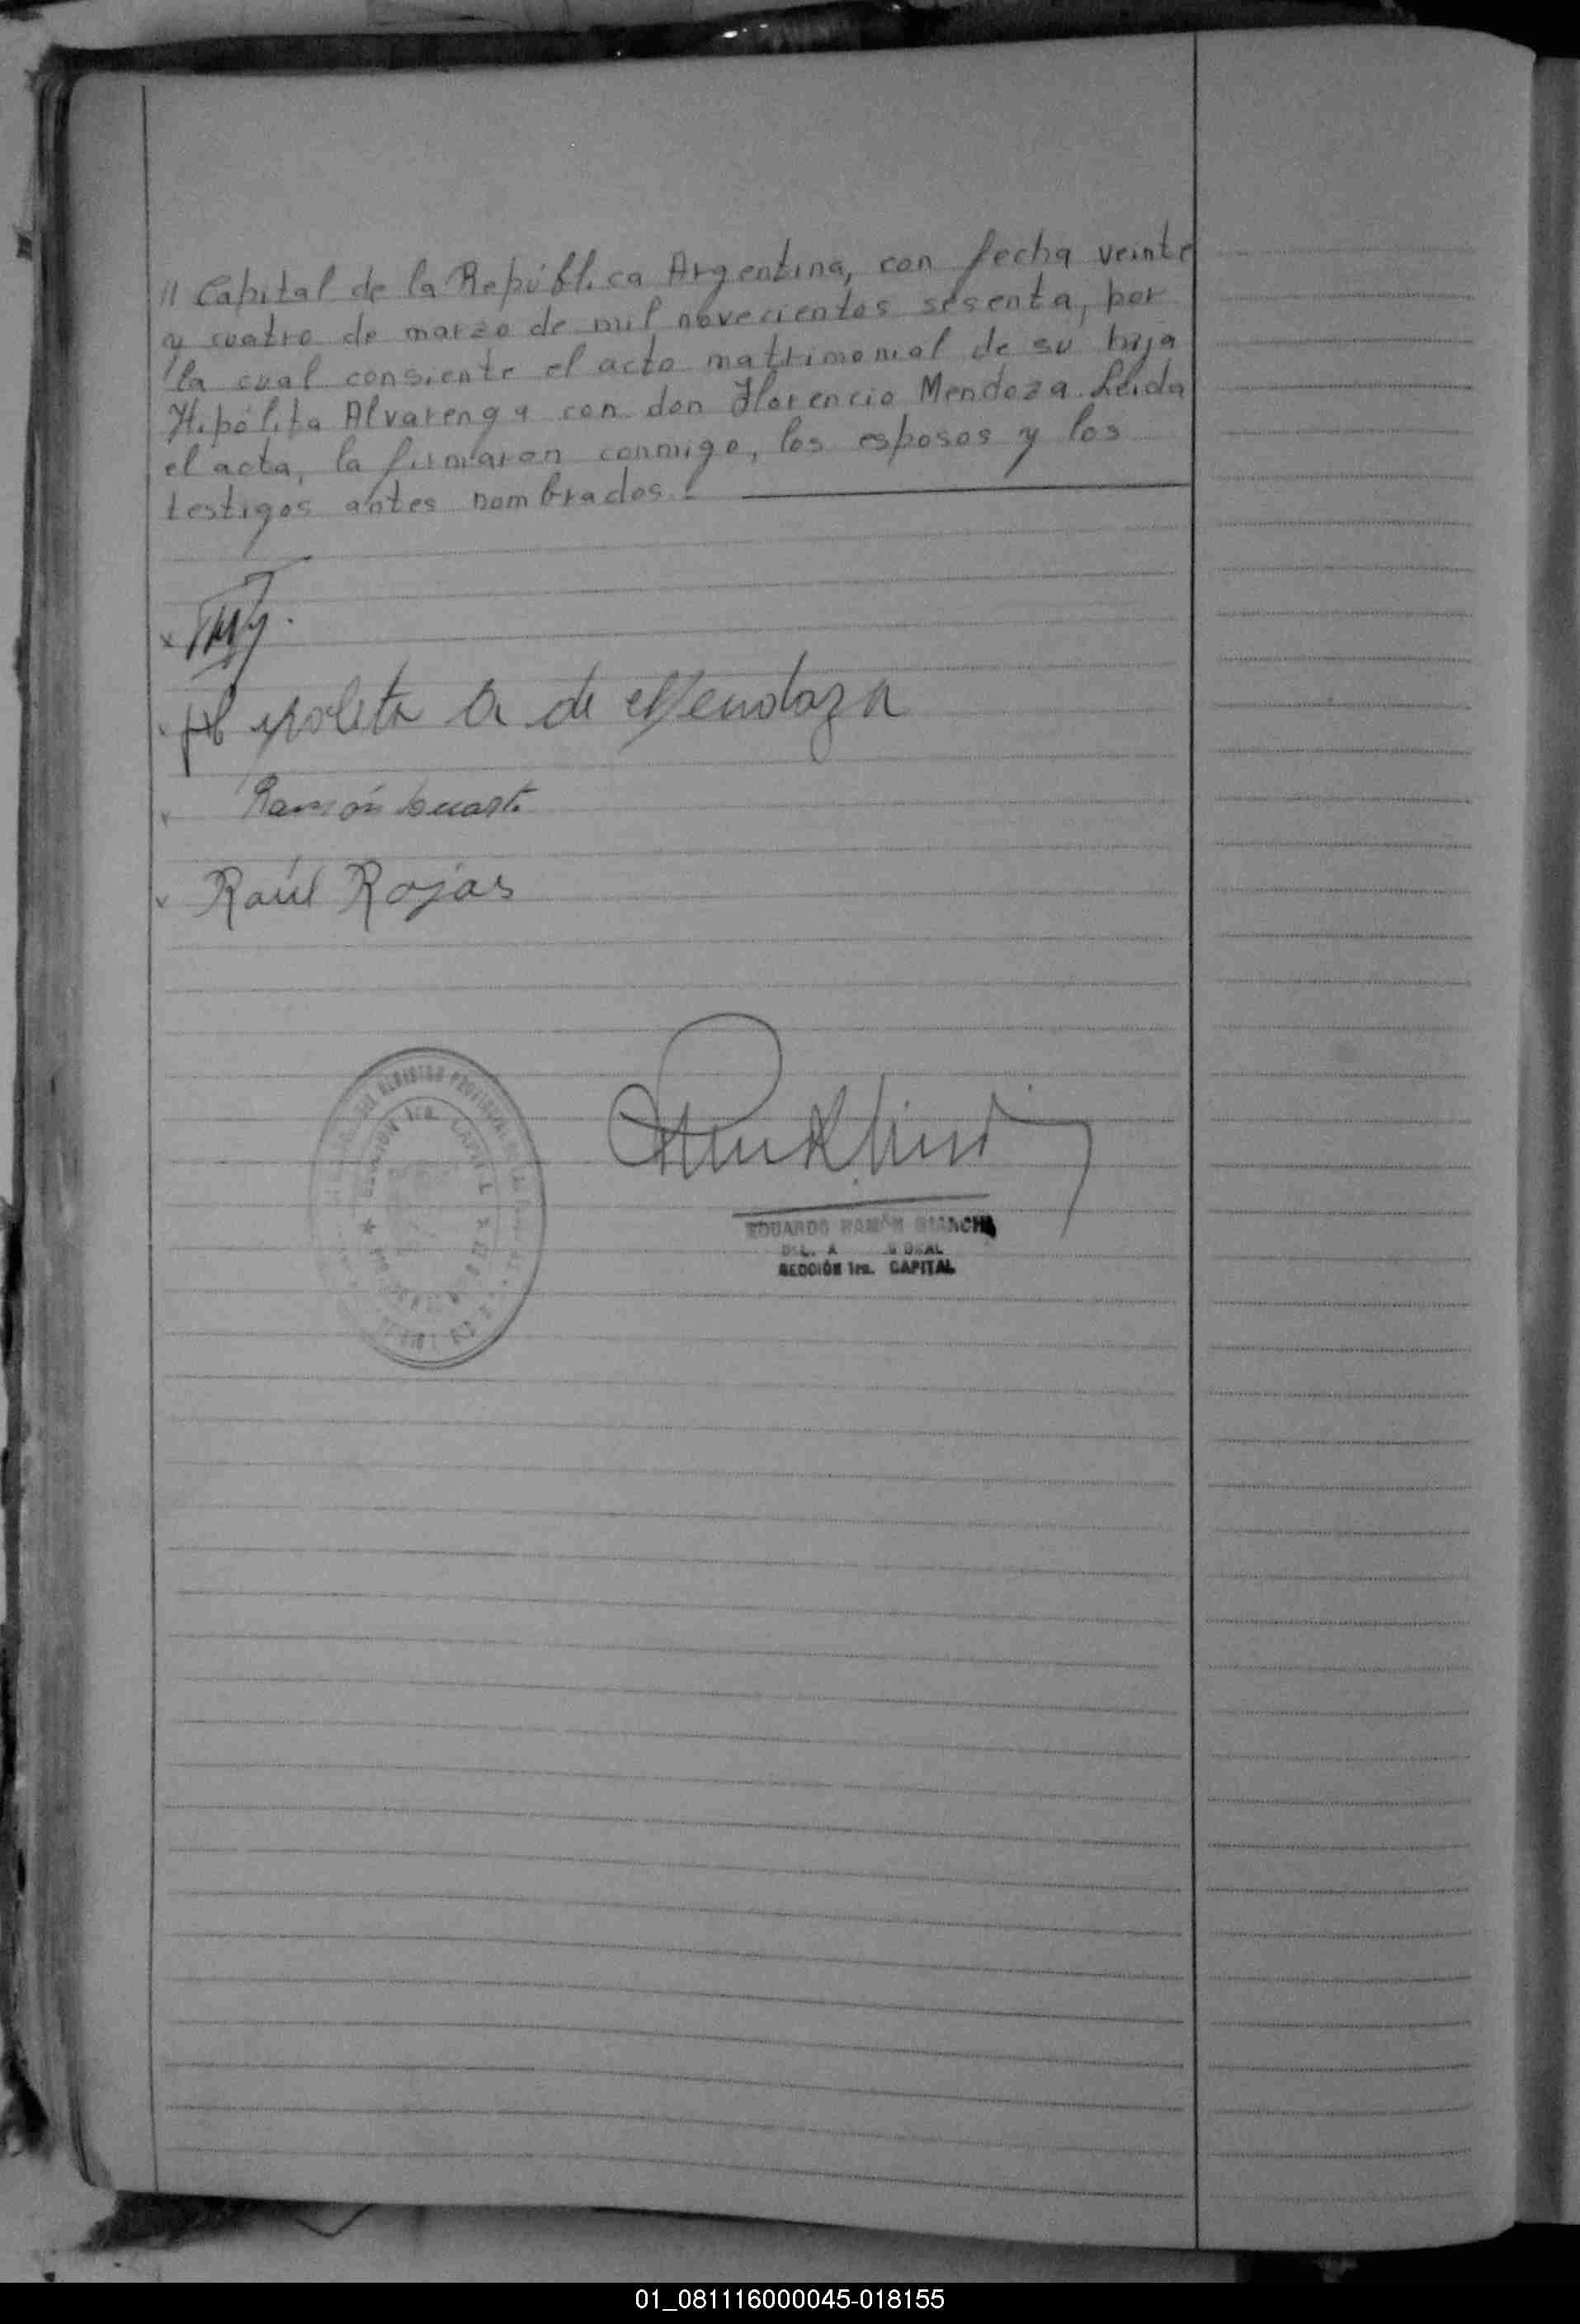 // Capital de la República Argentina, con fecha veinte
y cuatro de marzo de mil novecientos sesenta, por
la cual consiente el acto matrimonial de su hija
Hipólita Alvarenga con don Florencio Mendoza. Leída
el acta, la firmaron conmigo, los esposos y los
testigos antes nombrados.-
Hipolita A de Mendoza
Ramón Duarte
Raúl Rojas
EDUARDO RAMÓN BIANCHI
SECCIÓN 1ra. CAPITAL
REGISTRO PROVINCIAL
SECCION 1ra. CAPITAL
01_081116000045-018155